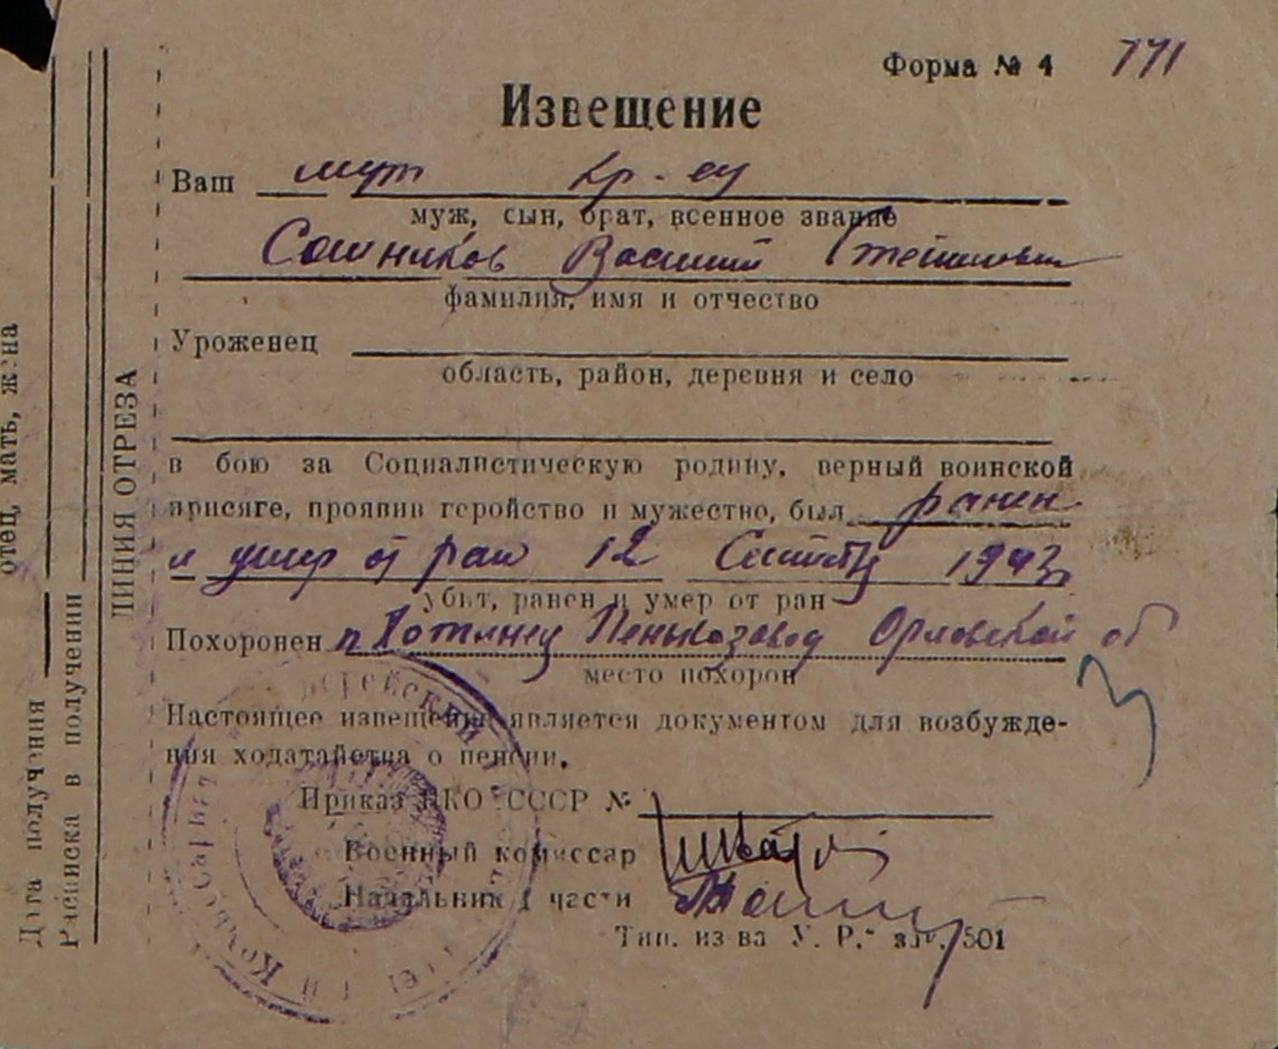 Форма № 4 771
Извещение
Ваш муж кр-ец
муж, сын, брат, военное звание
Сошников Василий
фамилия, имя и отчество
Уроженец
область, район, деревня и село
в бою за Социалистическую родину, верный воинской
присяге, проявив геройство и мужество, был ранен
и умер от ран 12 1943
убит, ранен и умер от ран
Похоронен п Хотынец Пенькозавод Орловской об
место похорон
Настоящее извещение является документом для возбужде-
ния ходатайства о пенсии.
Приказ НКО СССР №
Военный комиссар
Начальник 1 части
Тип. из-ва У. Р. 501
ЛИНИЯ ОТРЕЗА
Расписка в получении
Дата получения
отец, мать, жена